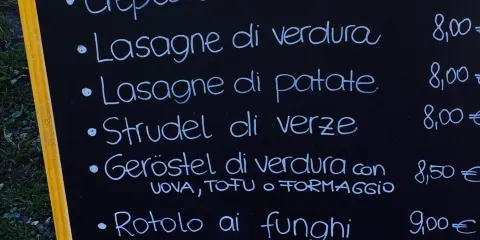 • Lasagne di verdura 8,00
• Lasagne di patate 8,00 €
• Strudel di verze 8,00 €
• Geröstel di verdura con 8,50 €
UOVA, TOFU O FORMAGGIO
• Rotolo ai funghi 9,00 €